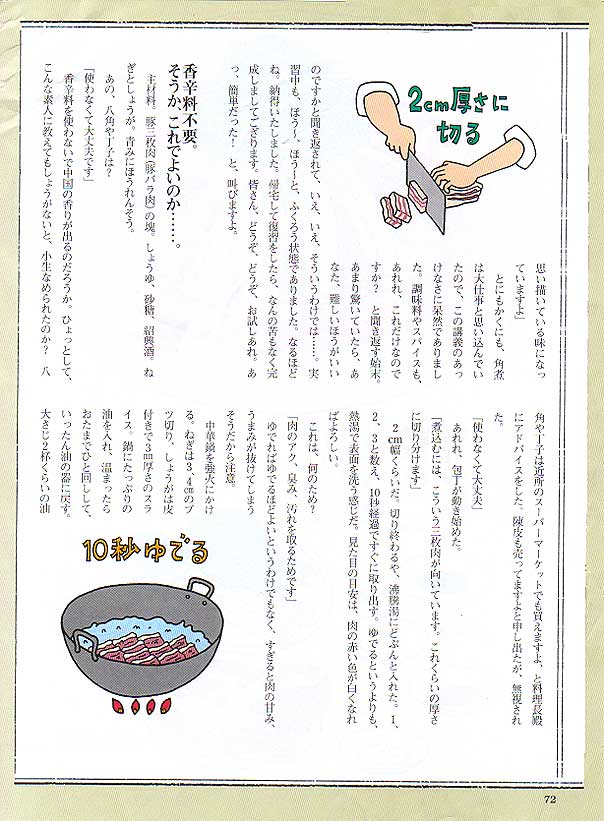 2cm厚さに
切る
思い描いている味になっ
ていますよ」
とにもかくにも、角煮
は大仕事と思い込んでい
たので、この講義のあっ
けなさに呆然でありまし
た。調味料やスパイスも、
あれれ、これだけなので
すか？　と聞き返す始末。
あまり驚いていたら、あ
なた、難しいほうがいい
のですかと聞き返されて、いえ、いえ、そういうわけでは……。実
習中も、ほう〜、ほう〜と、ふくろう状態でありました。なるほど
ね。納得いたしました。帰宅して復習をしたら、なんの苦もなく完
成しましてござります。皆さん、どうぞ、どうぞ、お試しあれ。あ
っ、簡単だった！　と、叫びますよ。
香辛料不要。
そうか、これでよいのか……。
主材料。豚三枚肉（豚バラ肉）の塊。しょうゆ、砂糖、紹興酒。ね
ぎとしょうが。青みにほうれんそう。
あの、八角や丁子は？
「使わなくて大丈夫です」
香辛料を使わないで中国の香りが出るのだろうか。ひょっとして、
こんな素人に教えてもしょうがないと、小生なめられたのか？　八
角や丁子は近所のスーパーマーケットでも買えますよ、と料理長殿
にアドバイスをした。陳皮も売ってますよと申し出たが、無視され
た。
「使わなくて大丈夫」
あれれ、包丁が動き始めた。
「煮込むには、こういう三枚肉が向いています。これくらいの厚さ
に切り分けます」
2cm幅くらいだ。切り終わるや、沸騰湯にどぶんと入れた。1、
2、3と数え、10秒経過ですぐに取り出す。ゆでるというよりも、
熱湯で表面を洗う感じだ。見た目の目安は、肉の赤い色が白くなれ
ばよろしい。
これは、何のため？
「肉のアク、臭み、汚れを取るためです」
ゆでればゆでるほどよいというわけでもなく、すぎると肉の甘み、
うまみが抜けてしまう
そうだから注意。
中華鍋を強火にかけ
る。ねぎは3、4cmのブ
ツ切り、しょうがは皮
付きで3mm厚さのスラ
イス。鍋にたっぷりの
油を入れ、温まったら
おたまでひと回しして、
いったん油の器に戻す。
大さじ2杯くらいの油
10秒ゆでる
72